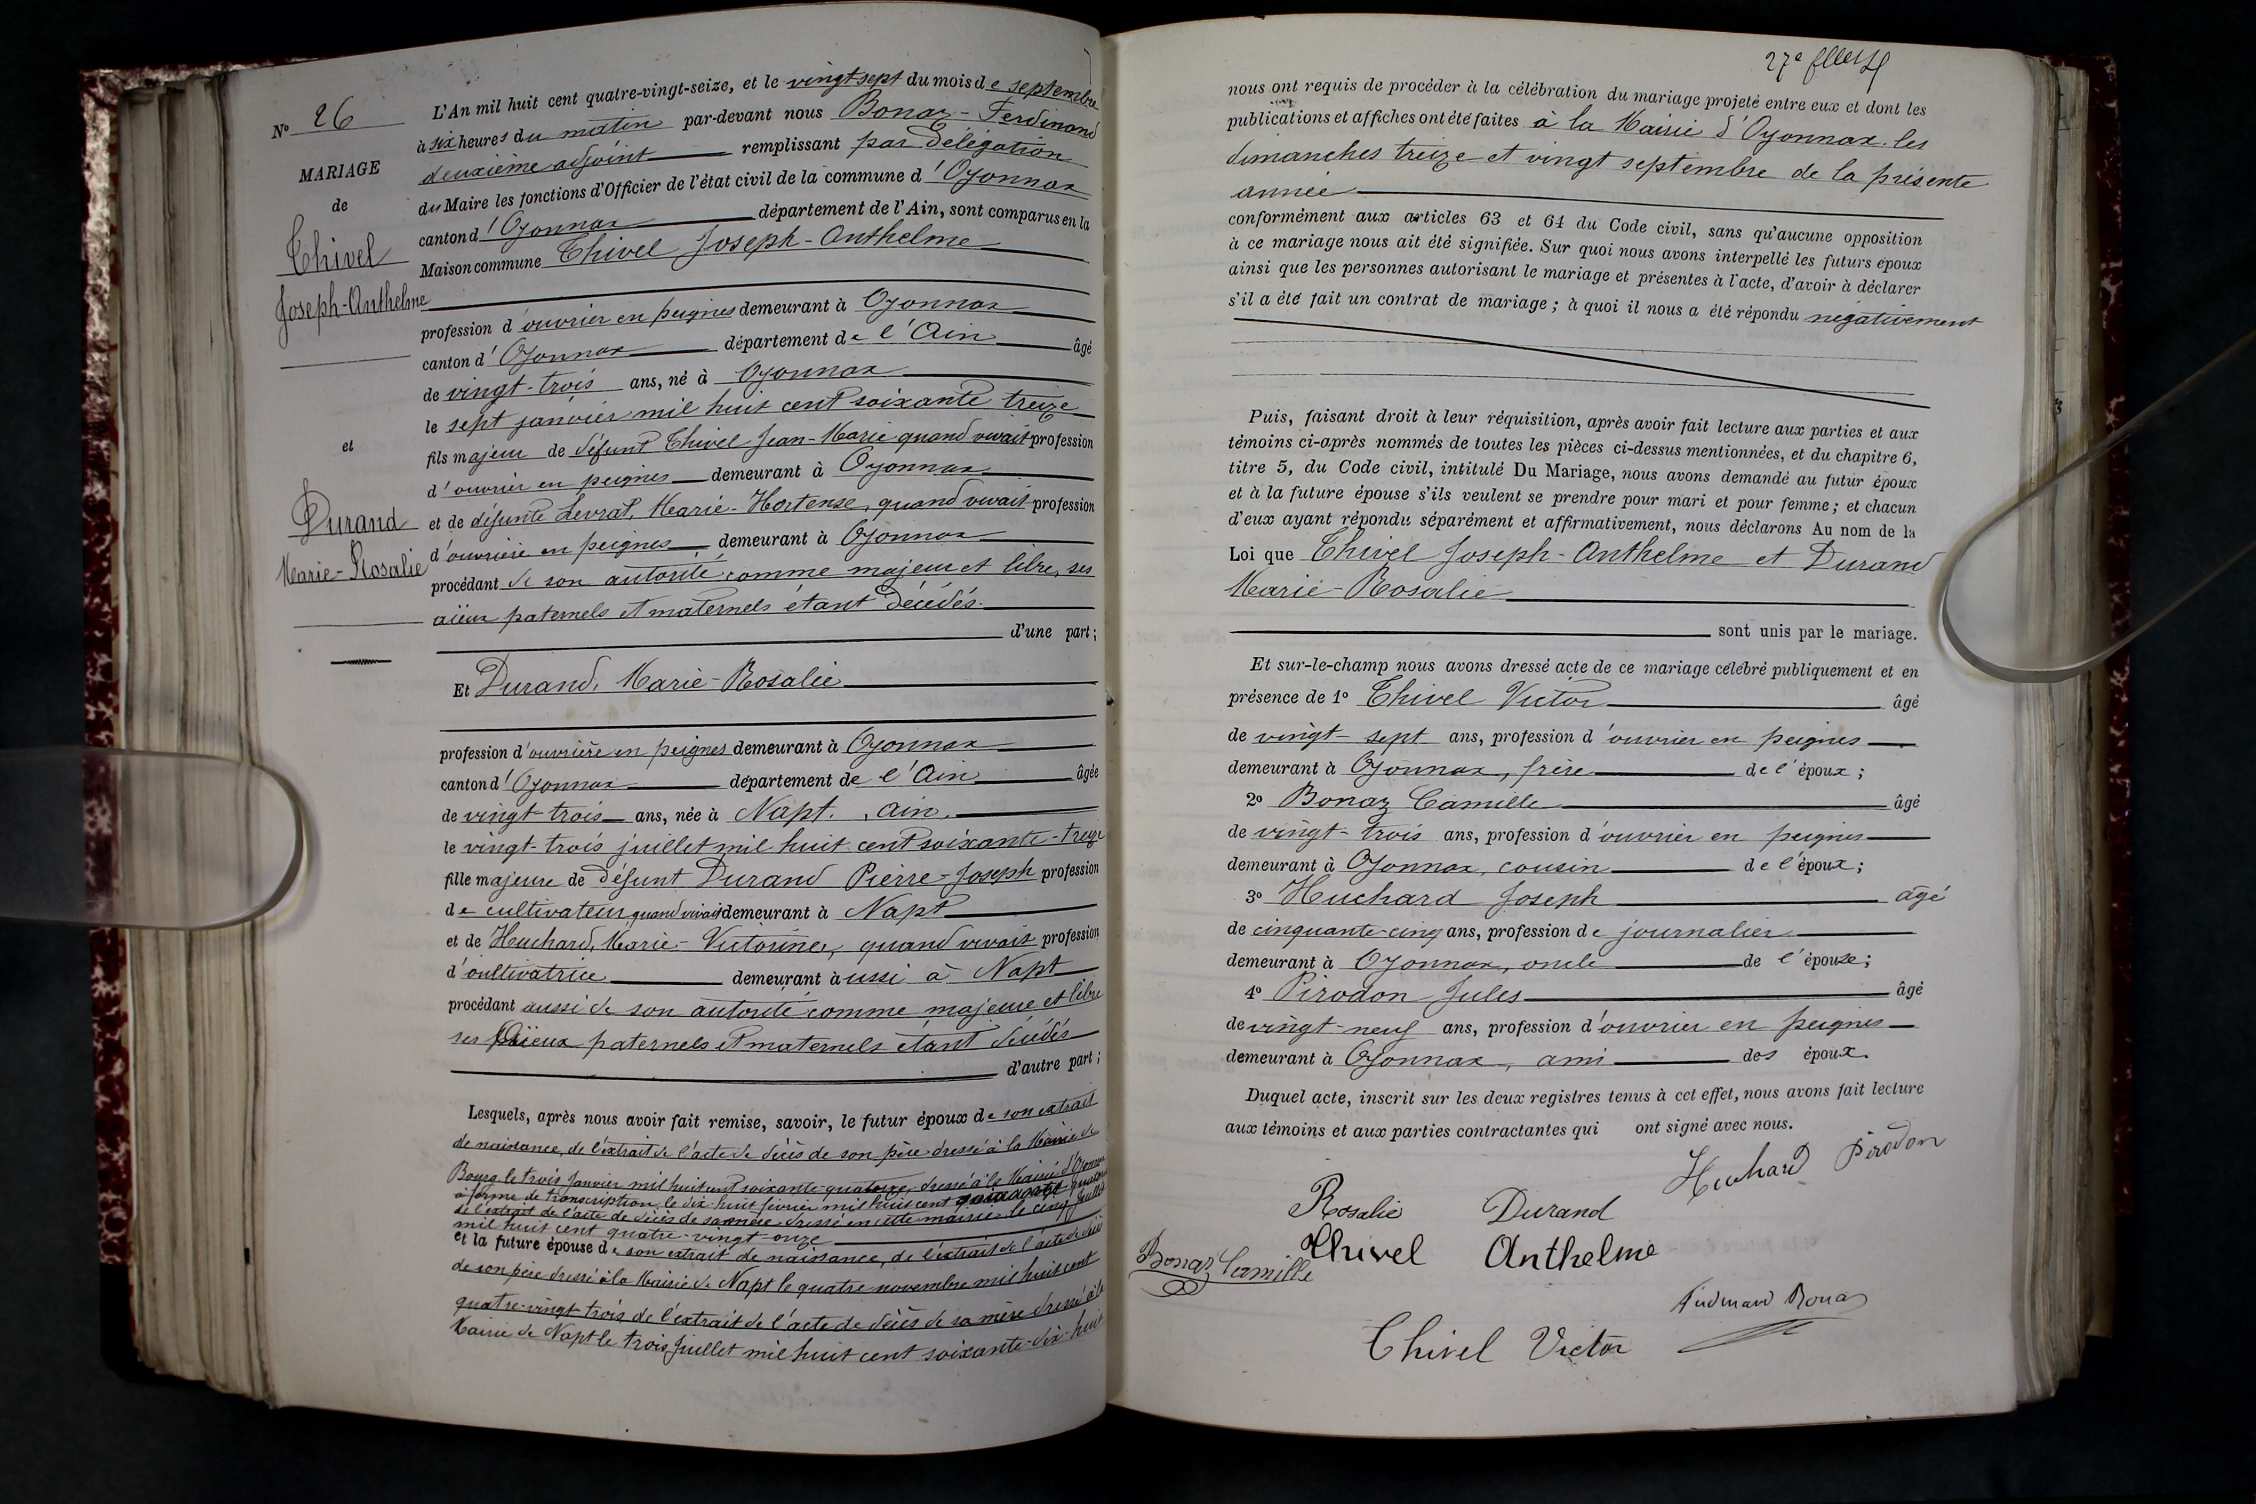 Nº 26
MARIAGE
de
Thivel
Joseph-Anthelme
et
Durand
Marie-Rosalie
L'An mil huit cent quatre-vingt-seize, et le vingt sept du mois de septembre
à six heures du matin par-devant nous Bonaz-Ferdinand
deuxième adjoint remplissant par délégation
du Maire les fonctions d'Officier de l'état civil de la commune d'Oyonnax
canton d'Oyonnax département de l'Ain, sont comparus en la
Maison commune Thivel Joseph-Anthelme
profession d'ouvrier en peignes demeurant à Oyonnax
canton d'Oyonnax département de l'Ain âgé
de vingt-trois ans, né à Oyonnax
le sept janvier mil huit cent soixante treize
fils majeur de défunt Thivel Jean-Marie quand vivait profession
d'ouvrier en peignes demeurant à Oyonnax
et de défunte Levrat, Marie-Hortense, quand vivait profession
d'ouvrière en peignes demeurant à Oyonnax
procédant de son autorité comme majeur et libre, ses
aïeux paternels et maternels étant décédés.
d'une part;
Et Durand, Marie-Rosalie
profession d'ouvrière en peignes demeurant à Oyonnax
canton d'Oyonnax département de l'Ain âgée
de vingt-trois ans, née à Napt, Ain,
le vingt-trois juillet mil huit cent soixante-treize
fille majeure de défunt Durand Pierre-Joseph profession
de cultivateur quand vivait demeurant à Napt
et de Huchard, Marie-Victorine, quand vivait profession
d'cultivatrice demeurant aussi à Napt
procédant aussi de son autorité comme majeure et libre
ses aïeux paternels et maternels étant décédés
d'autre part;
Lesquels, après nous avoir fait remise, savoir, le futur époux de son extrait
de naissance, de l'extrait de l'acte de décès de son père dressé à la Mairie de
Bourg le trois janvier mil huit cent soixante-quatorze, dressé à la Mairie d'Oyonnax
à forme de transcription, le dix huit février mil huit cent soixante quatorze
de l'extrait de l'acte de décès de sa mère dressé en cette mairie le cinq juillet
mil huit cent quatre-vingt-onze
et la future épouse de son extrait de naissance, de l'extrait de l'acte de décès
de son père dressé à la Mairie de Napt le quatre novembre mil huit cent
quatre-vingt trois de l'extrait de l'acte de décès de sa mère dressé à la
Mairie de Napt le trois juillet mil huit cent soixante-dix-huit
27e
nous ont requis de procéder à la célébration du mariage projeté entre eux et dont les
publications et affiches ont été faites à la Mairie d'Oyonnax les
dimanches treize et vingt septembre de la présente
année
conformément aux articles 63 et 64 du Code civil, sans qu'aucune opposition
à ce mariage nous ait été signifiée. Sur quoi nous avons interpellé les futurs époux
ainsi que les personnes autorisant le mariage et présentes à l'acte, d'avoir à déclarer
s'il a été fait un contrat de mariage; à quoi il nous a été répondu négativement
Puis, faisant droit à leur réquisition, après avoir fait lecture aux parties et aux
témoins ci-après nommés de toutes les pièces ci-dessus mentionnées, et du chapitre 6,
titre 5, du Code civil, intitulé Du Mariage, nous avons demandé au futur époux
et à la future épouse s'ils veulent se prendre pour mari et pour femme; et chacun
d'eux ayant répondu séparément et affirmativement, nous déclarons Au nom de la
Loi que Thivel Joseph-Anthelme et Durand
Marie-Rosalie
sont unis par le mariage.
Et sur-le-champ nous avons dressé acte de ce mariage célébré publiquement et en
présence de 1º Thivel Victor âgé
de vingt-sept ans, profession d'ouvrier en peignes
demeurant à Oyonnax, frère de l'époux;
2º Bonaz Camille âgé
de vingt-trois ans, profession d'ouvrier en peignes
demeurant à Oyonnax, cousin de l'époux;
3º Huchard Joseph âgé
de cinquante-cinq ans, profession de journalier
demeurant à Oyonnax, oncle de l'épouse;
4º Pirodon Jules âgé
de vingt-neuf ans, profession d'ouvrier en peignes
demeurant à Oyonnax, ami des époux.
Duquel acte, inscrit sur les deux registres tenus à cet effet, nous avons fait lecture
aux témoins et aux parties contractantes qui ont signé avec nous.
Huchard Pirodon
Rosalie Durand
Thivel Anthelme
Bonaz Camille
Ferdinand Bonaz
Thivel Victor